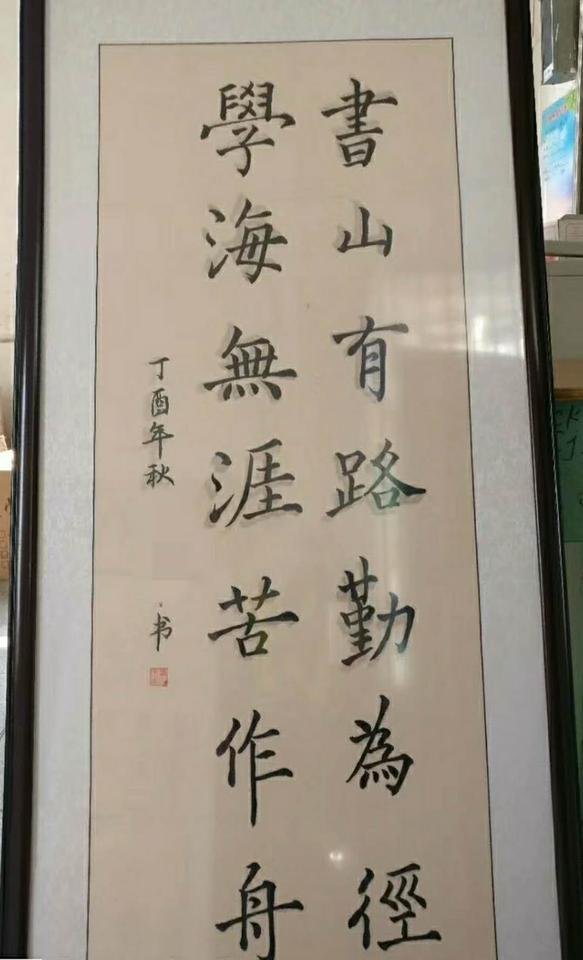 書山有路勤為徑
學海無涯苦作舟
丁酉年秋
书